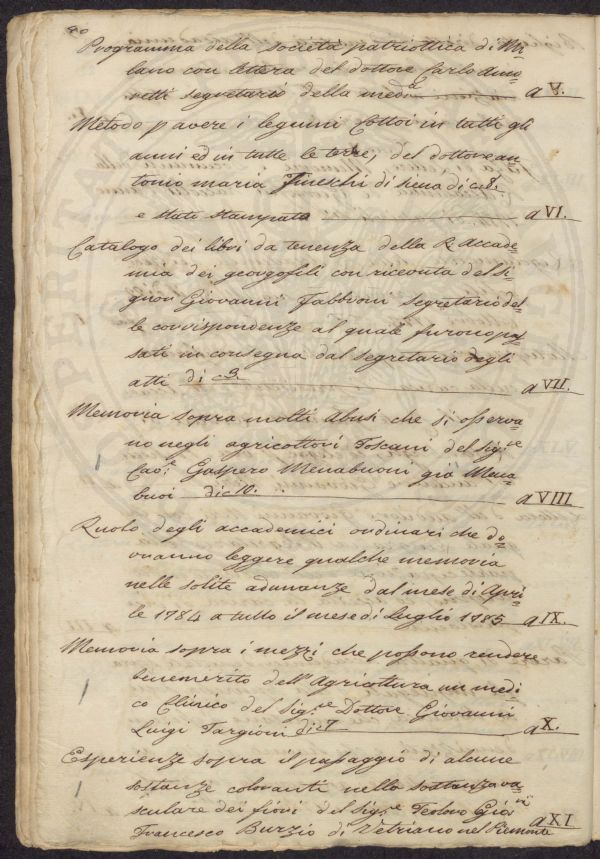 80
Programma della società patriottica di Mi=
lano con lettera del dottore Carlo Amo=
retti segretario della medª a V.
Metodo p avere i legumi Cottoi in tutti gli
anni ed in tutte le terre, del dottore an=
tonio maria Fineschi di Siena di c.
e stato stampato a VI.
Catalogo dei libri da tenenza della R. Accade=
mia dei georgofili con riceuta del si=
gnor Giovanni Fabbroni segretario del=
le corrispondenze al quale furono pas=
sati in consegna dal segretario degli
atti di c 3. a VII.
Memoria sopra molti Abusi che si osserva=
no negli agricottori Toscani del sig.re
Cav.e Gaspero Menabuoni già Mena=
buoi di c 10. a VIII
Ruolo degli accademici ordinari che do=
vranno leggere qualche memoria
nelle solite adunanze dal mese di Apri=
le 1784 a tutto il mese di Luglio 1785 a IX.
Memoria sopra i mezzi che possono rendere
benemerito dell'Agricottura un medi
co Clinico del Sig.re Dottore Giovanni
Luigi Targioni di c 7 a X.
Esperienze sopra il passaggio di alcune
sostanze coloranti nella sostanza va=
sculare dei fiori del Sig.re Teodoro Gio:
Francesco Burzio di Vetriano nel Piemonte a XI